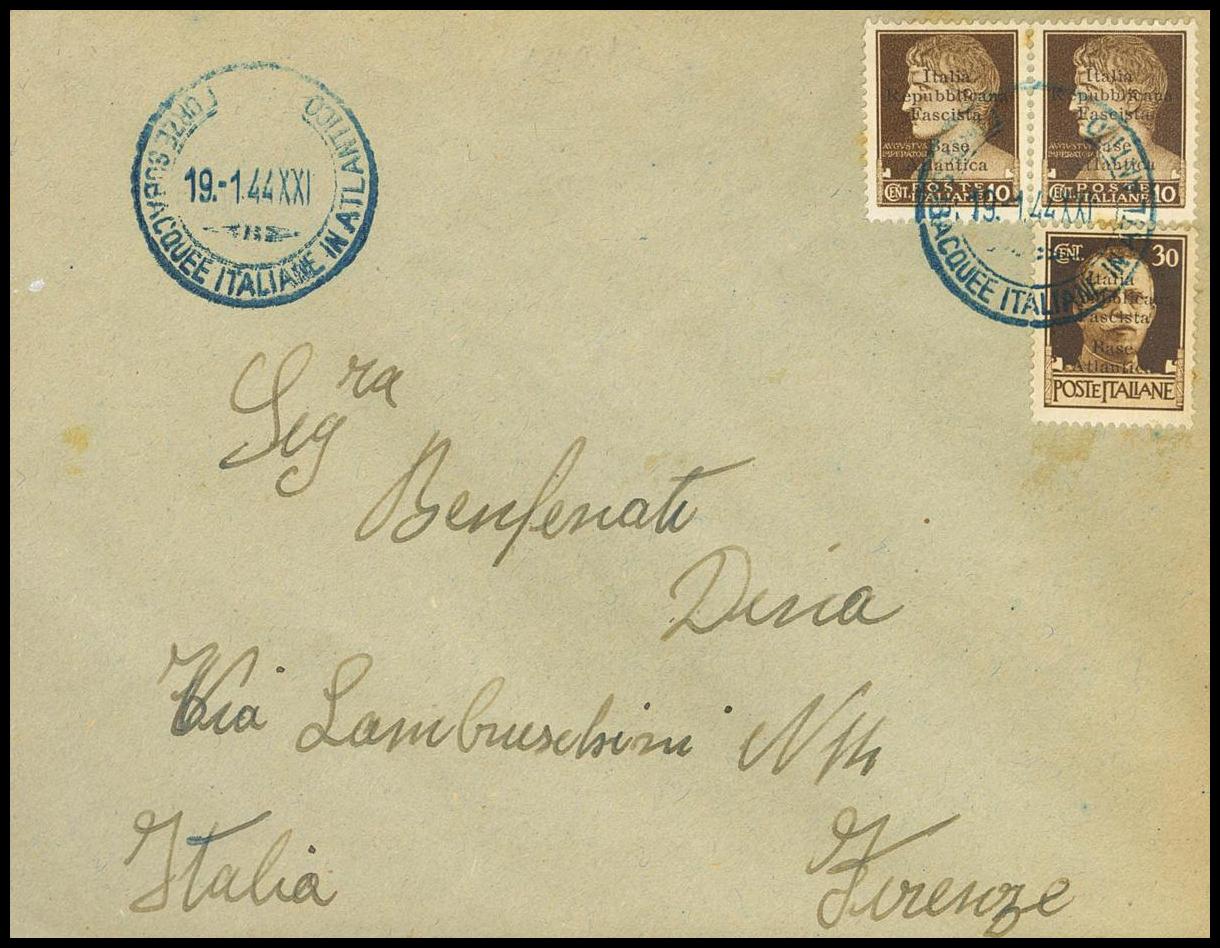 FORZE SUBACQUEE ITALIANE IN ATLANTICO
19.-1.44 XXI
AUGVSTVS
IMPERATOR
CENT. POSTE ITALIANE 10
Italia
Repubblicana
Fascista
Base
Atlantica
AUGVSTVS
IMPERATOR
CENT. POSTE ITALIANE 10
Italia
Repubblicana
Fascista
Base
Atlantica
19.-1.44 XXI
SUBACQUEE ITALIANE IN ATLANTICO
CENT. 30
Italia
Repubblicana
Fascista
Base
Atlantica
POSTE ITALIANE
Seg ra
Benfenati
Via Lambruschini N
Italia Firenze